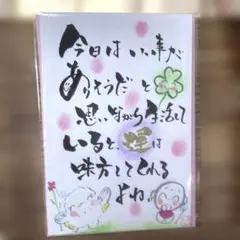 今日はいい事が
ありそうだと
思いながら生活して
いると、運は
味方してくれる
よね。